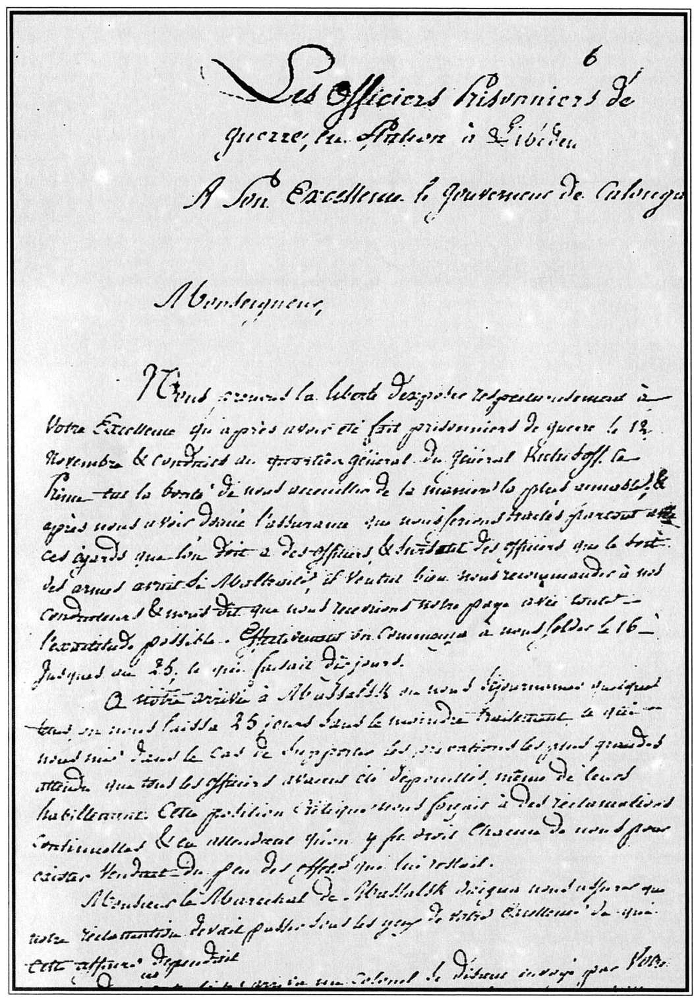 6
Les Officiers Prisonniers de
guerre, en Station à
A Son Excellence le gouverneur de Calouga
Monseigneur,
Nous prenons la liberté d'exposer respectueusement à
Votre Excellence qu'après avoir été fait prisonniers de guerre le 12
novembre & conduits au quartier général du général Kutusoff, ce
Prince eut la bonté de nous accueillir de la manière la plus aimable, &
après nous avoir donné l'assurance que nous serions traités partout avec
ces égards que l'on doit a des officiers, & surtout des officiers que le sort
des armes avait si Maltraité, il voulut bien nous recommander à nos
conducteurs & nous dit que nous recevrions notre paye avec toute
l'exactitude possible. Effectivement on commença à nous solder le 16
jusques au 25, ce qui faisait dix jours.
A notre arrivée à Massalsk ou nous séjournames quelque
tems, on nous laissa 25 jours sans le moindre traitement, ce qui
nous mis dans le cas de supporter les privations les plus grandes
attendu que tous les officiers avaient été dépouillés, même de leurs
habillement. Cette position critique nous forçait à des réclamations
continuelles & en attendant qu'on y fit droit chacun de nous pour
exister vendait du peu des effets qui lui restait.
Monsieur le Maréchal de Massalsk nous assura que
notre réclamation devait passer sous les yeux de votre Excellence de qui
cette affaire dépendait
un Colonel se disant envoyé par Votre